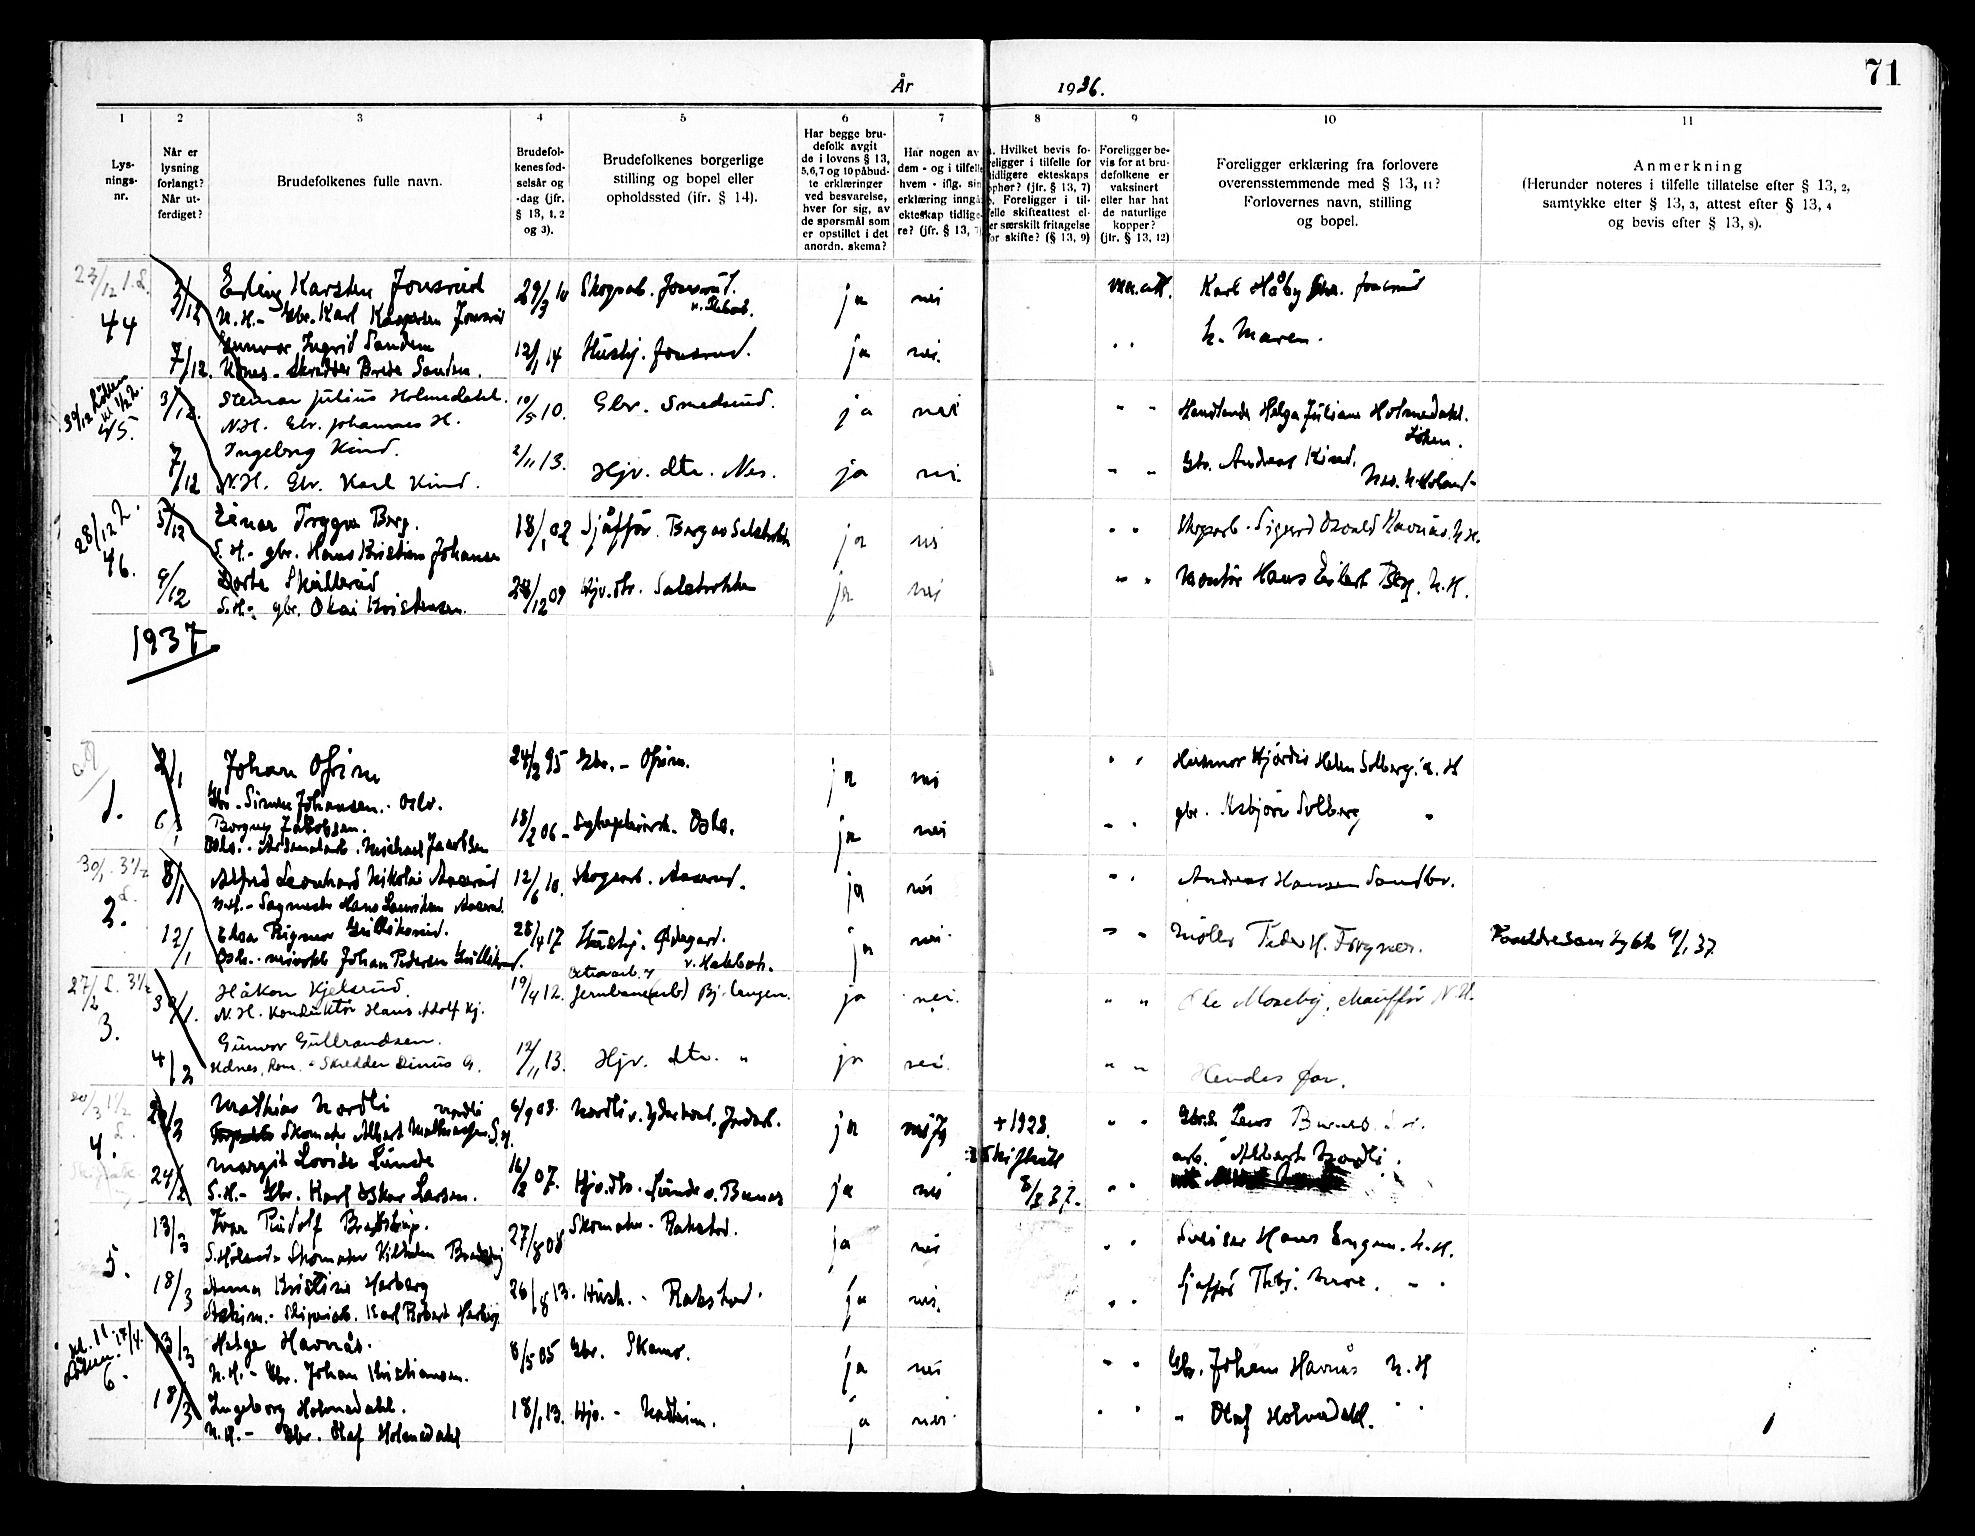 71
År 1936.
1 2 3 4 5 6 7 8 9 10 11
Lys-
nings-
nr.
Når er
lysning
forlangt?
Når ut-
ferdiget?
Brudefolkenes fulle navn.
Brudefol-
kenes fød-
selsår og
-dag (jfr.
§ 13, 1, 2
og 3).
Brudefolkenes borgerlige
stilling og bopel eller
opholdssted (jfr. § 14).
Har begge bru-
defolk avgit
de i lovens § 13,
5, 6, 7 og 10 påbud-
te erklæringer
ved besvarelse,
hver for sig, av
de spørsmål som
er opstillet i det
anordn. skema?
Har nogen av
dem - og i tilfelle
hvem - iflg. sin
erklæring inngå
ekteskap tidlige-
re? (jfr. § 13, 7)
a. Hvilket bevis fo-
religger i tilfelle for
tidligere ekteskaps
ophør? (jfr. § 13, 7)
b. Foreligger i til-
felle skifteattest el-
ler særskilt fritagelse
for skifte? (§ 13, 9)
Foreligger be-
vis for at bru-
defolkene er
vaksinert
eller har hat
de naturlige
kopper?
(jfr. § 13, 12)
Foreligger erklæring fra forlovere
overensstemmende med § 13, 11?
Forlovernes navn, stilling
og bopel.
Anmerkning
(Herunder noteres i tilfelle tillatelse efter § 13, 2,
samtykke efter § 13, 3, attest efter § 13, 4
og bevis efter § 13, 8).
23/12 1. L.
44
3/12 Erling Karsten Jonsrud 29/3 10 Skogsarb. Jonsrud. ja nei Karl Håby Jonsrud
N.H.- Gbr. Karl Kaspersen Jonsrud
Gunvor Ingrid Sanden 12/1 14 Hushj. Jonsrud. ja nei. " " Maren.
7/12. Udnes - Skredder Brede Sanden.
30/12 Løken kl 1/2 2.
45.
3/12. Steinar Julius Holmedahl. 10/5 10. Gbr. Smedsrud. ja nei " " Helga Juliane Holmedahl.
N.H. Gbr. Johannes H. Løken.
Ingeborg Kind. 2/11 13. Hjv. dtr. Nes. ja nei. " " Gbr. Andreas Kind,
7/12 N.H. Gbr. Karl Kind. Nes. N. Høland
28/12 2.
46.
5/12 Einar Trygve Berg. 18/1 02 Sjåffør. Berg ja nei " " Skogsarb. Sigurd Osvald Havnås. N.H.
S.H.- gbr. Hans Kristian Johansen
9/12 Dorte Skallerud 28/12 09 Hjv. dtr. ja nei " " Montør Hans Eilert Berg. N.H.
S.H.- gbr. Okai Kristensen.
1937
1.
2/1 Johan Ofrim 24/2 95 Gbr. - Ofrim. ja nei " " Husmor Hjørdis Helen Solberg. N.H
Gbr. Simen Johansen. Oslo.
6/1 Borgny Jakobsen. 18/2 06 - Oslo. ja nei " " gbr. Asbjørn Solberg "
Oslo. - Michael Jacobsen
30/1. 3 1/2 L.
2.
8/1 Alfred Leonhard Nikolai Aaserud 12/6 10. Skogsarb. Aaserud. ja nei " " Andreas Hansen Sandbr.
N.H. - Sagmester Hans Lauritsen Aaserud.
12/1 Elsa Rigmor 25/4 17 Hushj. Ødegard. ja nei " " Møller Peder H. Frogner. Foreldresamtykke 4/1 37.
Oslo. - Johan Pedersen v. Hakkbøh.
27/2 L. 3 1/2
3.
30/1. Håkon Kjelsrud. 19/4 12. Jernbane(arb) Bj. langen. ja nei. " " Ole Moseby, chauffør N.H.
N.H. Konduktør Hans Adolf Kj.
Gunvor Gulbrandsen. 12/11 13. Hjv. dtr. " ja nei. " " Hendes far.
4/2 Udnes, Rom. - Skredder Dinius G.
20/3 1 1/2
4. L.
20/2 Mathias Nordli 6/9 08. Nordli Jordarb. ja nei + 1928. " "
Skomaker Albert Mathiassen Nordli S.H. Skifteatt arb. Albert Nordli.
Margit Lovise Lunde 16/2 07. Hjv. dtr. Lunde v. Bunes ja nei 8/3 37. " "
24/2 S.H.- Gbr. Karl Oskar Larsen.
5.
13/3 Ivar Rudolf 27/8 08 Skomaker - Rakstad. ja nei " " Sveiser Hans Engen. N.H.
S.Høland - Skomaker Vilhelm
18/3 Anna Kristine Herberg 26/8 13. Hush. - Rakstad. ja nei. " " Sjåffør Thbj. Moe. " "
Askim. - Karl Robert Herberg
kl. 11. 17/4. Løken.
6.
13/3 Helge Havnås. 8/5 05 Gbr. Skamo. ja nei " " Gbr. Johan Havnås N.H
N.H. - Gbr. Johan Kristiansen.
18/3 Ingeborg Holmedahl. 18/1 13. Hjv. - ja nei " " " Olaf Holmedahl. " "
N.H.- Gbr. Olaf Holmedahl